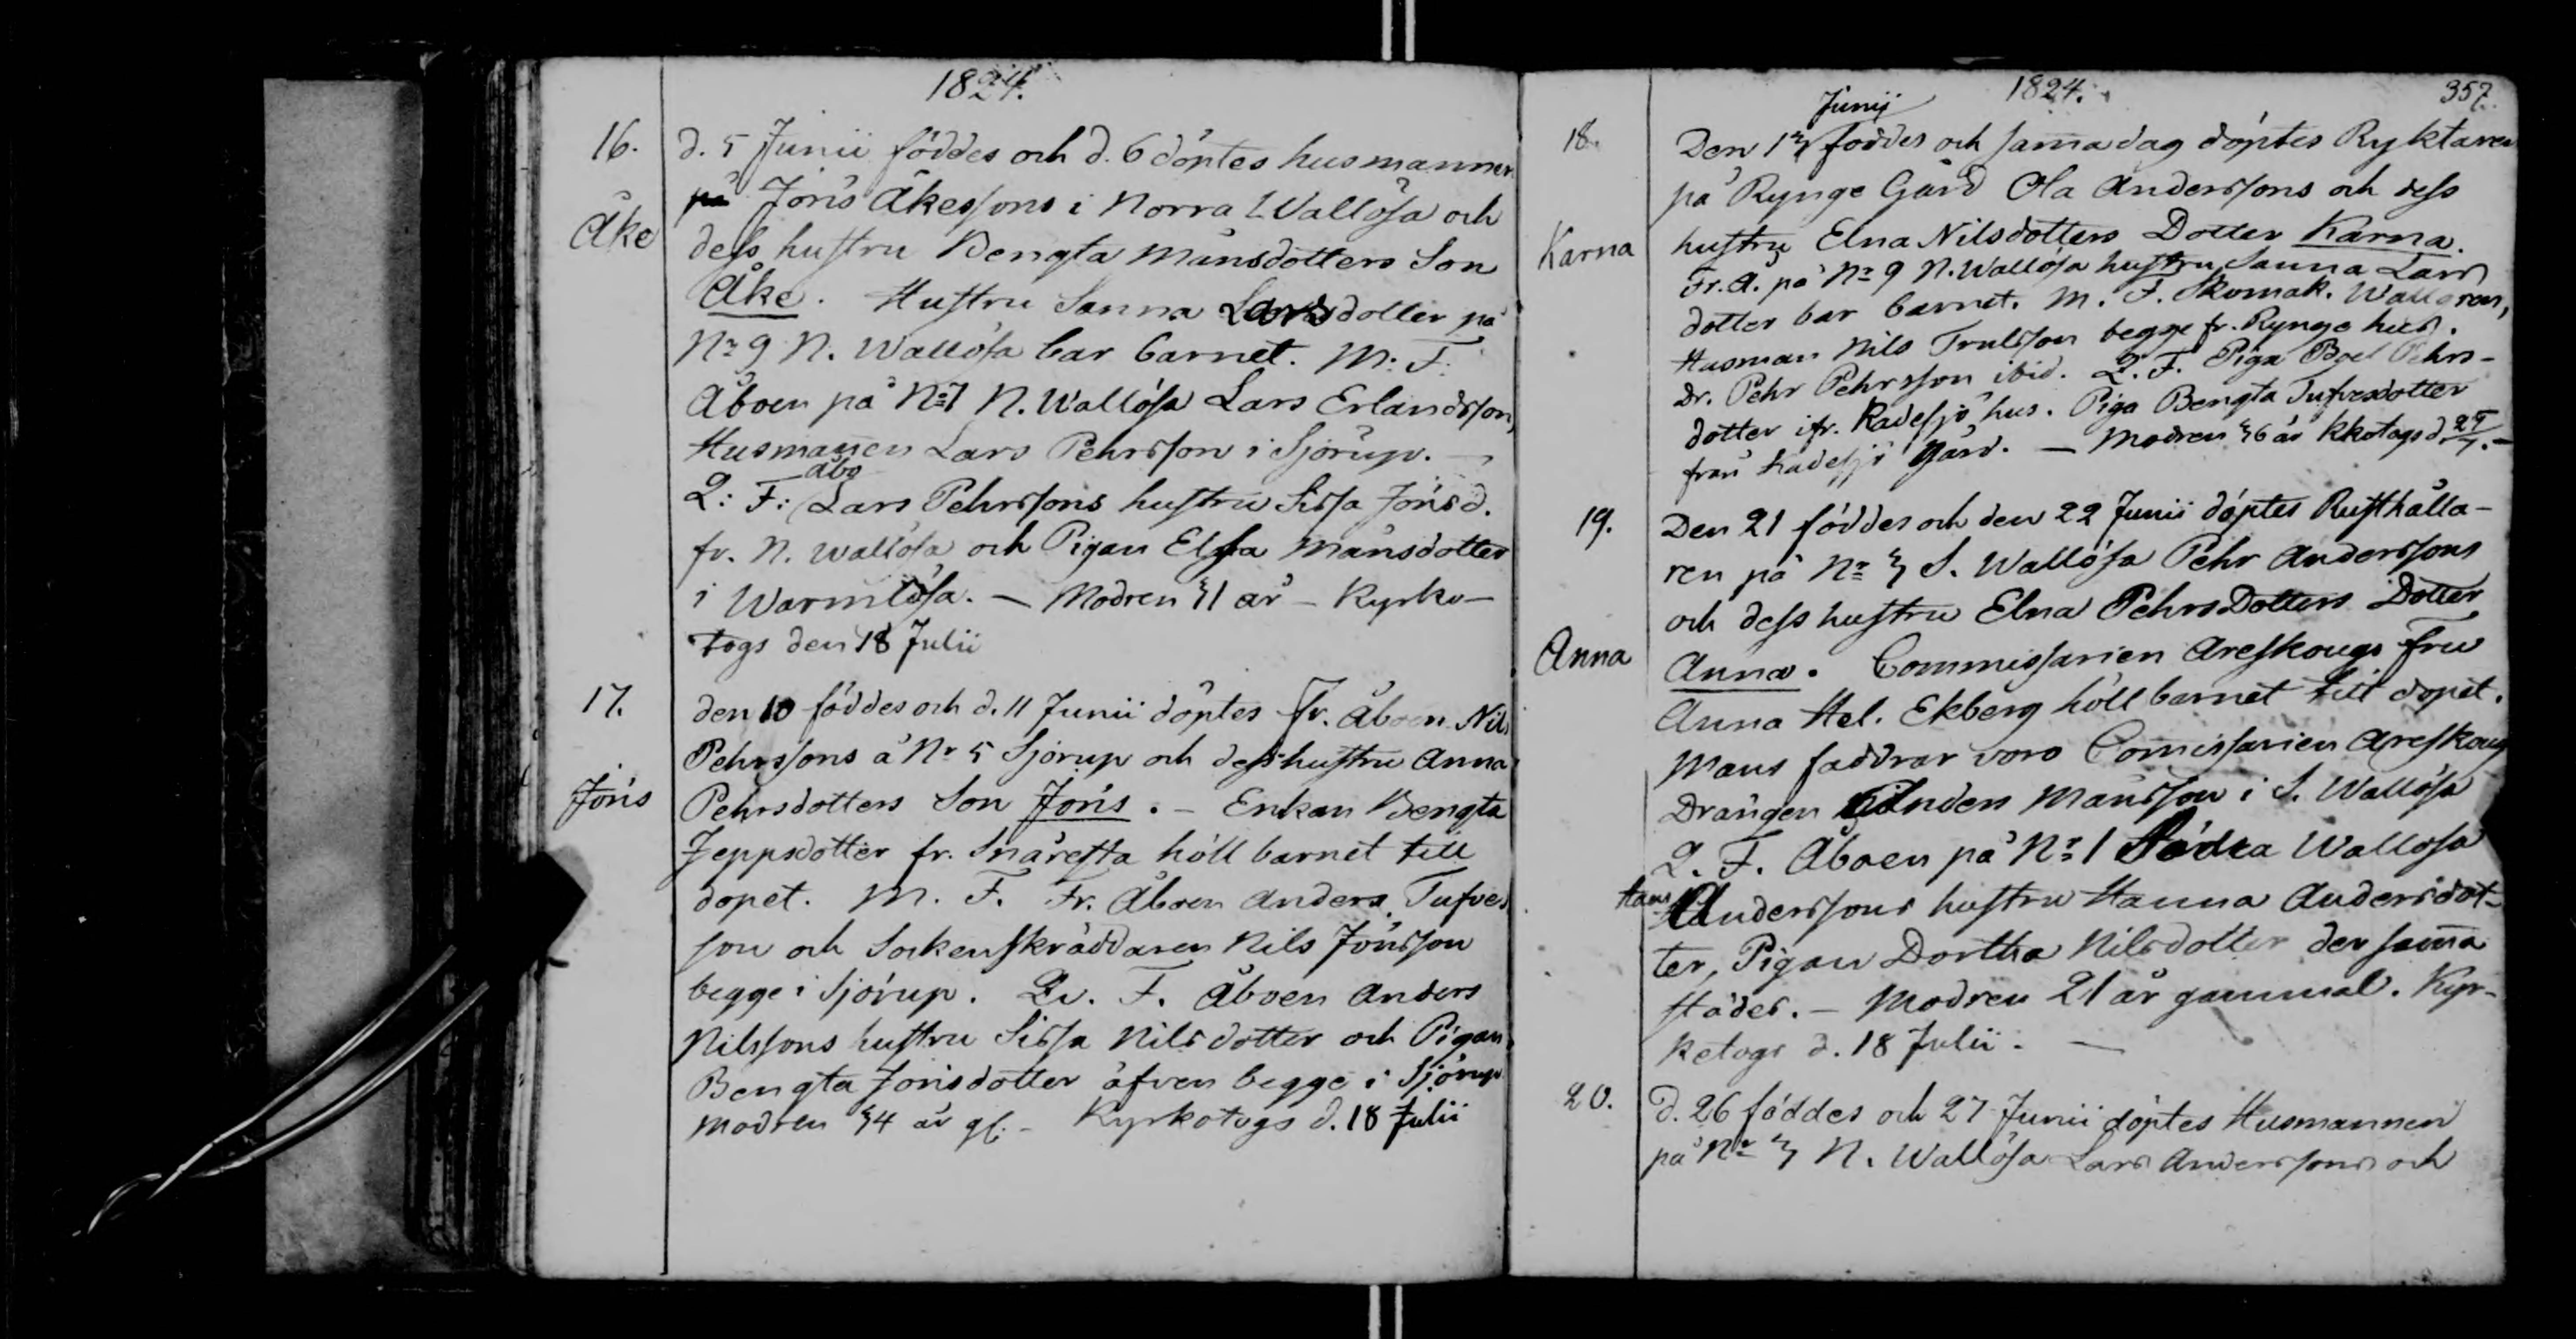 1824.
16.
d. 5 Junii föddes och d. 6 döptes husmannen
på Jöns Åkessons i Norra Wallösa och
Åke
dess hustru Bengta Månsdotters Son
Åke. Hustru Sanna Larsdotter på
Nr 9 N. Wallösa bar barnet. M: F:
Åboen på Nr 7 N. Wallösa Lars Erlandsson,
Husmanen Lars Pehrsson i Sjörup. —
åbo
Q: F: Lars Pehrssons hustru Sissa Jönsd.
fr. N. Wallösa och Pigan Elsa Månsdotter
i Warmlösa. — Modren 31 år — Kyrko-
togs den 18 Julii
17.
den 10 föddes och d. 11 Junii döptes fr. Åboen Nils
Pehrssons å Nr 5 Sjörup och dess hustru Anna
Jöns
Pehrsdotters Son Jöns. — Enkan Bengta
Jeppsdotter fr. Snårestа höll barnet till
dopet. M. F. Fr. Åboen Anders Tufves
son och Sockenskräddaren Nils Jönsson
begge i Sjörup. Qv. F. Åboen Anders
Nilssons hustru Sissa Nilsdotter och Pigan
Bengta Jönsdotter äfven begge i Sjörup
Modren 34 år gl. — Kyrkotogs d. 18 Julii
1824.
357.
Junii
18.
Den 13 föddes och sama dag döptes Ryktaren
på Rynge Gård Ola Anderssons och dess
Karna
hustru Elna Nilsdotters Dotter Karna.
Fr. Å. på Nr 9 N. Wallösa hustru Sanna Lars
dotter bar barnet. M. F. Skomak. Walloren,
Husman Nils Trulsson begge fr. Rynge hus.
Dr. Pehr Pehrsson ibid. Q. F. Piga Boel Pehrs-
dotter ifr. Radesjö hus. Piga Bengta Tufvesdotter
från Radesjö gård. — Modren 36 år kkotogs d. 25/7. —
19.
Den 21 föddes och den 22 Junii döptes Rusthålla-
ren på Nr 3 S. Wallösa Pehr Anderssons
och dess hustru Elna PehrsDotters Dotter
Anna
Anna. Commissarien Areskougs Fru
Anna Hel. Ekberg höll barnet till dopet.
Mans faddrar voro Comissarien Areskoug
Drängen Anders Månsson i S. Wallösa
Q. F. Åboen på Nr 1 Södra Wallösa
Hans
Anderssons hustru Hanna Andersdot-
ter, Pigan Dortha Nilsdotter der sama
städes. — Modren 21 år gammal. Kyr-
ketogs d. 18 Julii. —
20.
d. 26 föddes och 27 Junii döptes Husmannen
på Nr 3 N. Wallösa Lars Anderssons och